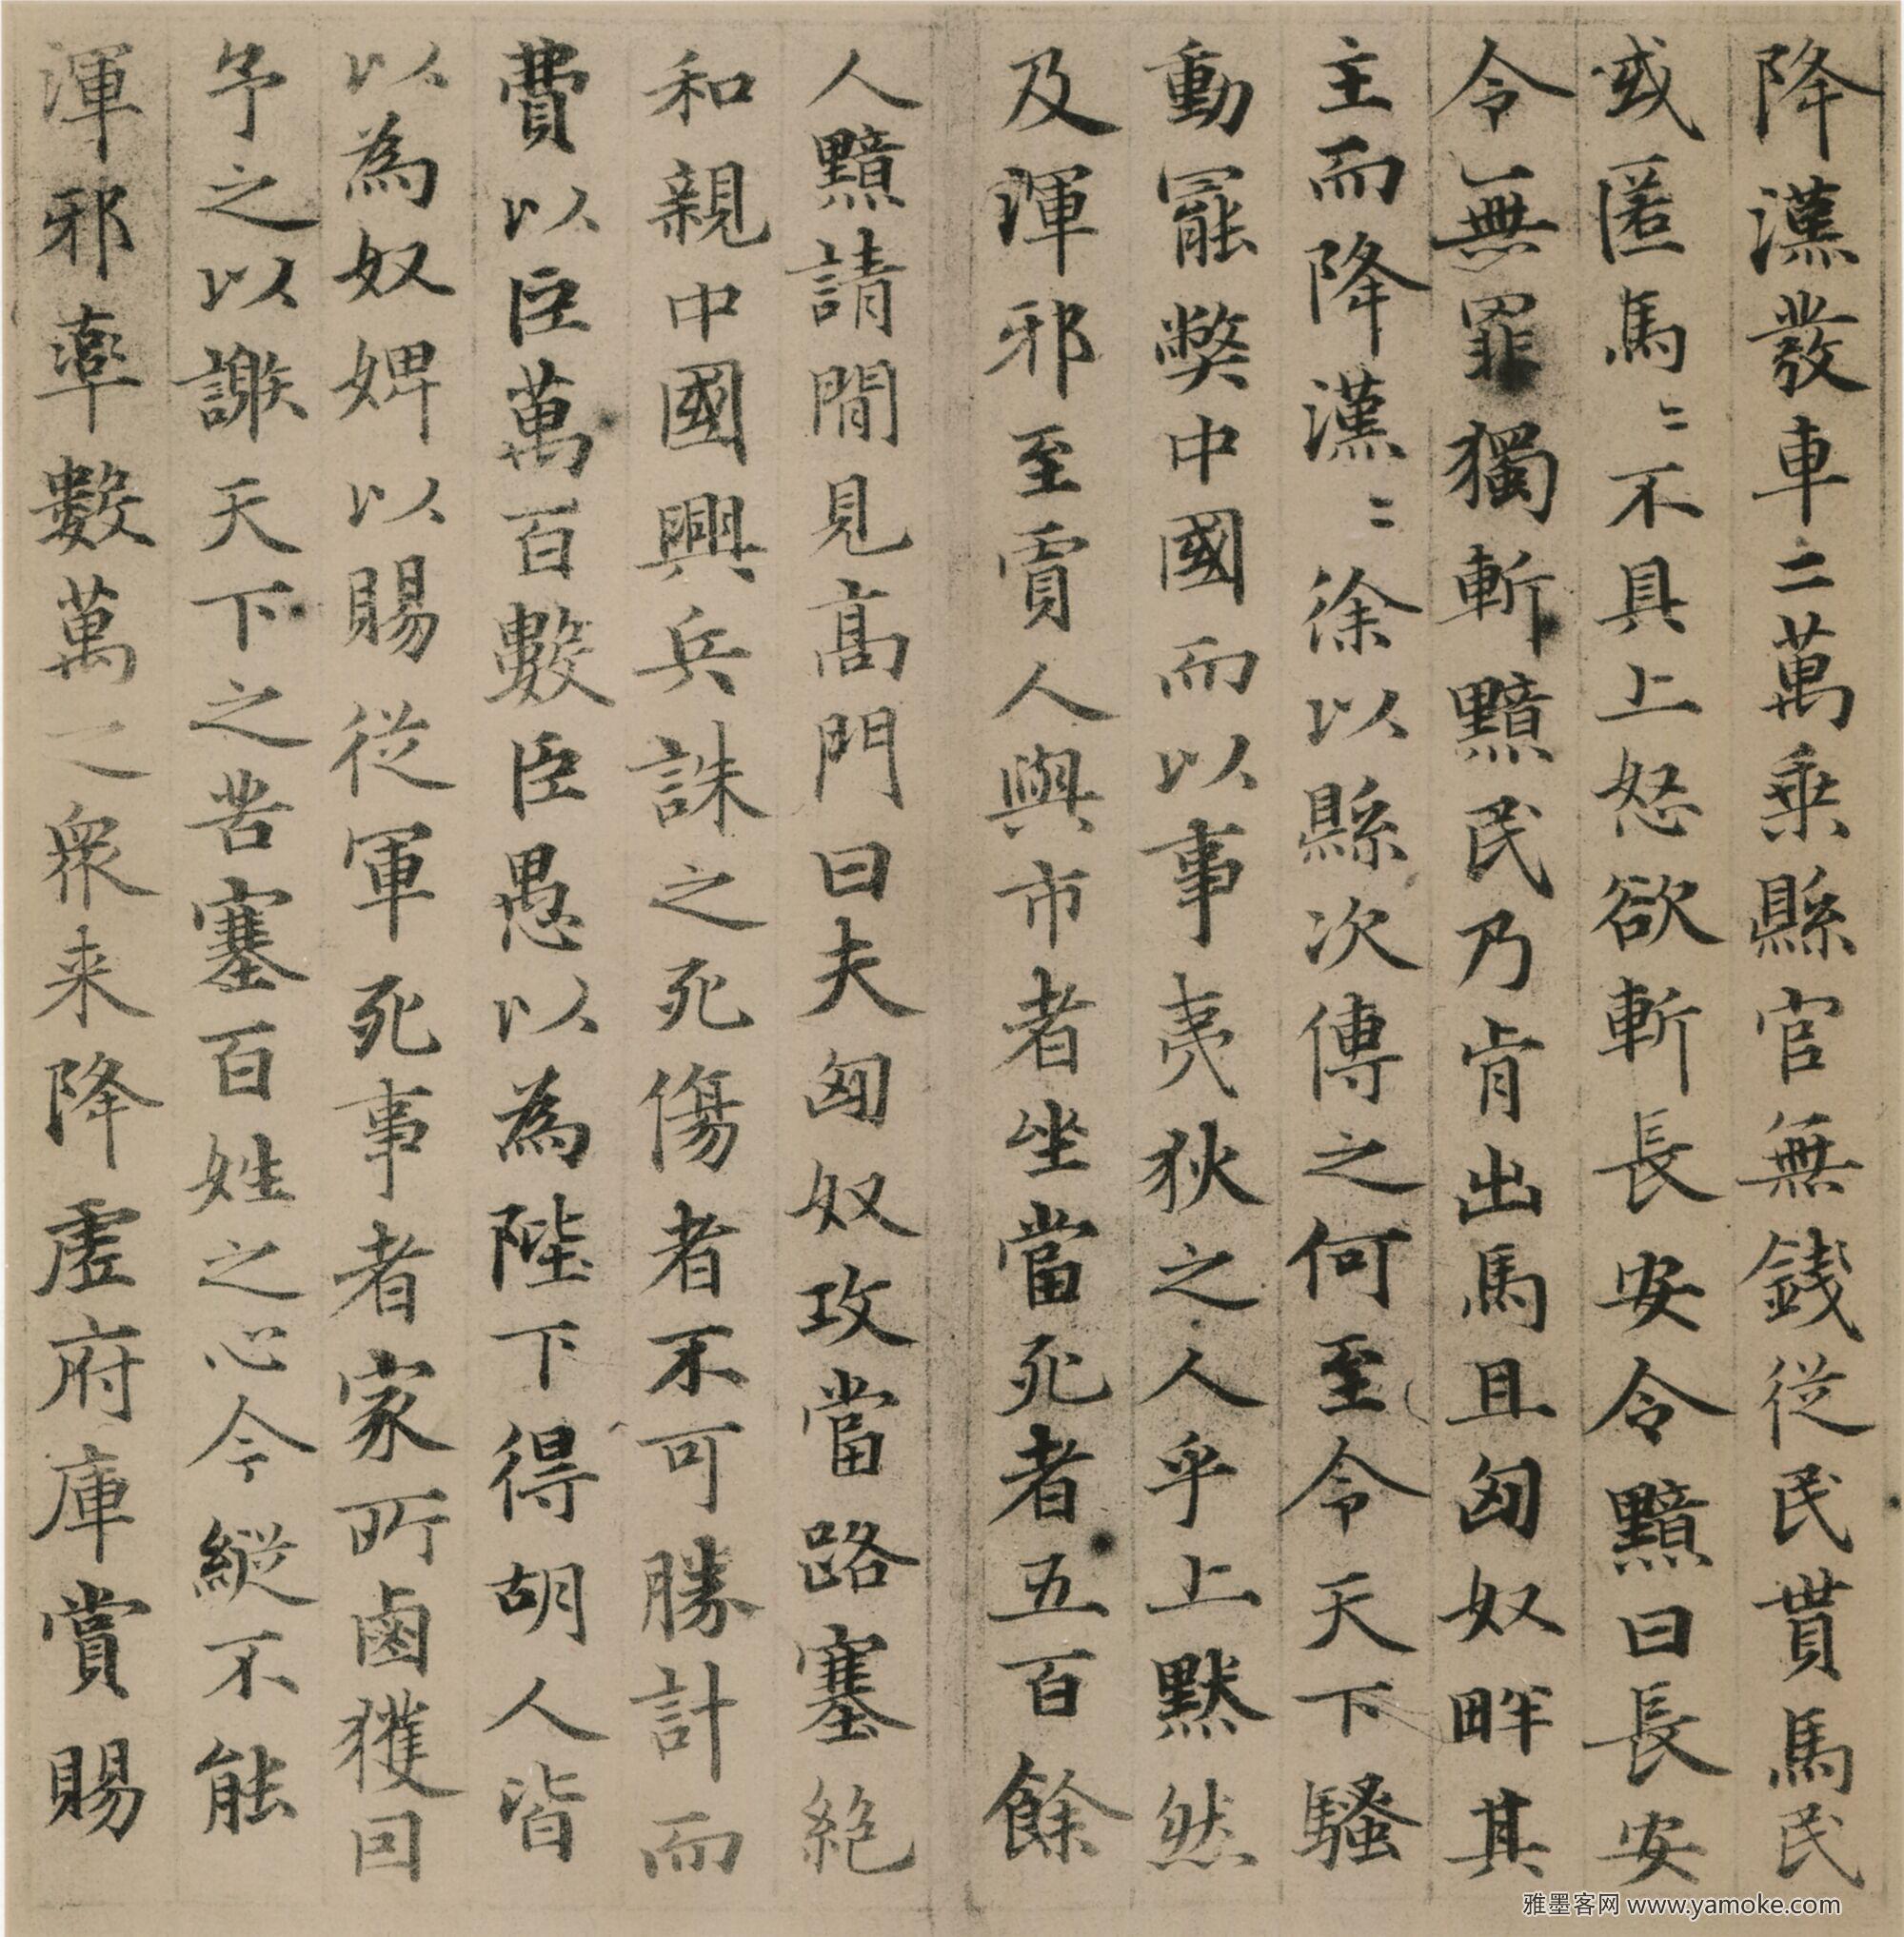 降漢發車二萬乗縣官無錢從民貰馬民
或匿馬〻不具上怒欲斬長安令黯曰長安
令無罪獨斬黯民乃肯出馬且匈奴畔其
主而降漢〻徐以縣次傳之何至令天下騷
動罷弊中國而以事夷狄之人乎上默然
及渾邪至賈人與市者坐當死者五百餘
人黯請間見高門曰夫匈奴攻當路塞絶
和親中國興兵誅之死傷者不可勝計而
費以臣萬百數臣愚以為陛下得胡人皆
以為奴婢以賜從軍死事者家所鹵獲因
予之以謝天下之苦塞百姓之心今縱不能
渾邪率數萬之衆来降虚府庫賞賜
雅墨客网 www.yamoke.com